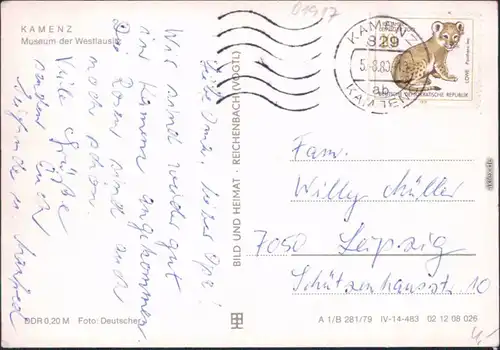 KAMENZ
Museum der Westlausitz
01917
Liebe Oma, lieber Opa!
Wir sind wieder gut
in Kamenz angekommen.
Die Rosen sind auch
noch schön.
Viele Grüße
senden Euch
Manfred
DDR 0,20 M Foto: Deutscher
BILD UND HEIMAT · REICHENBACH (VOGTL)
KAMENZ
829
ab
KAMENZ
LÖWE
DEUTSCHE DEMOKRATISCHE REPUBLIK
Fam.
Willy Müller
7050 Leipzig
Schützenhausstr. 10
A 1/B 281/79 IV-14-483 02 12 08 026